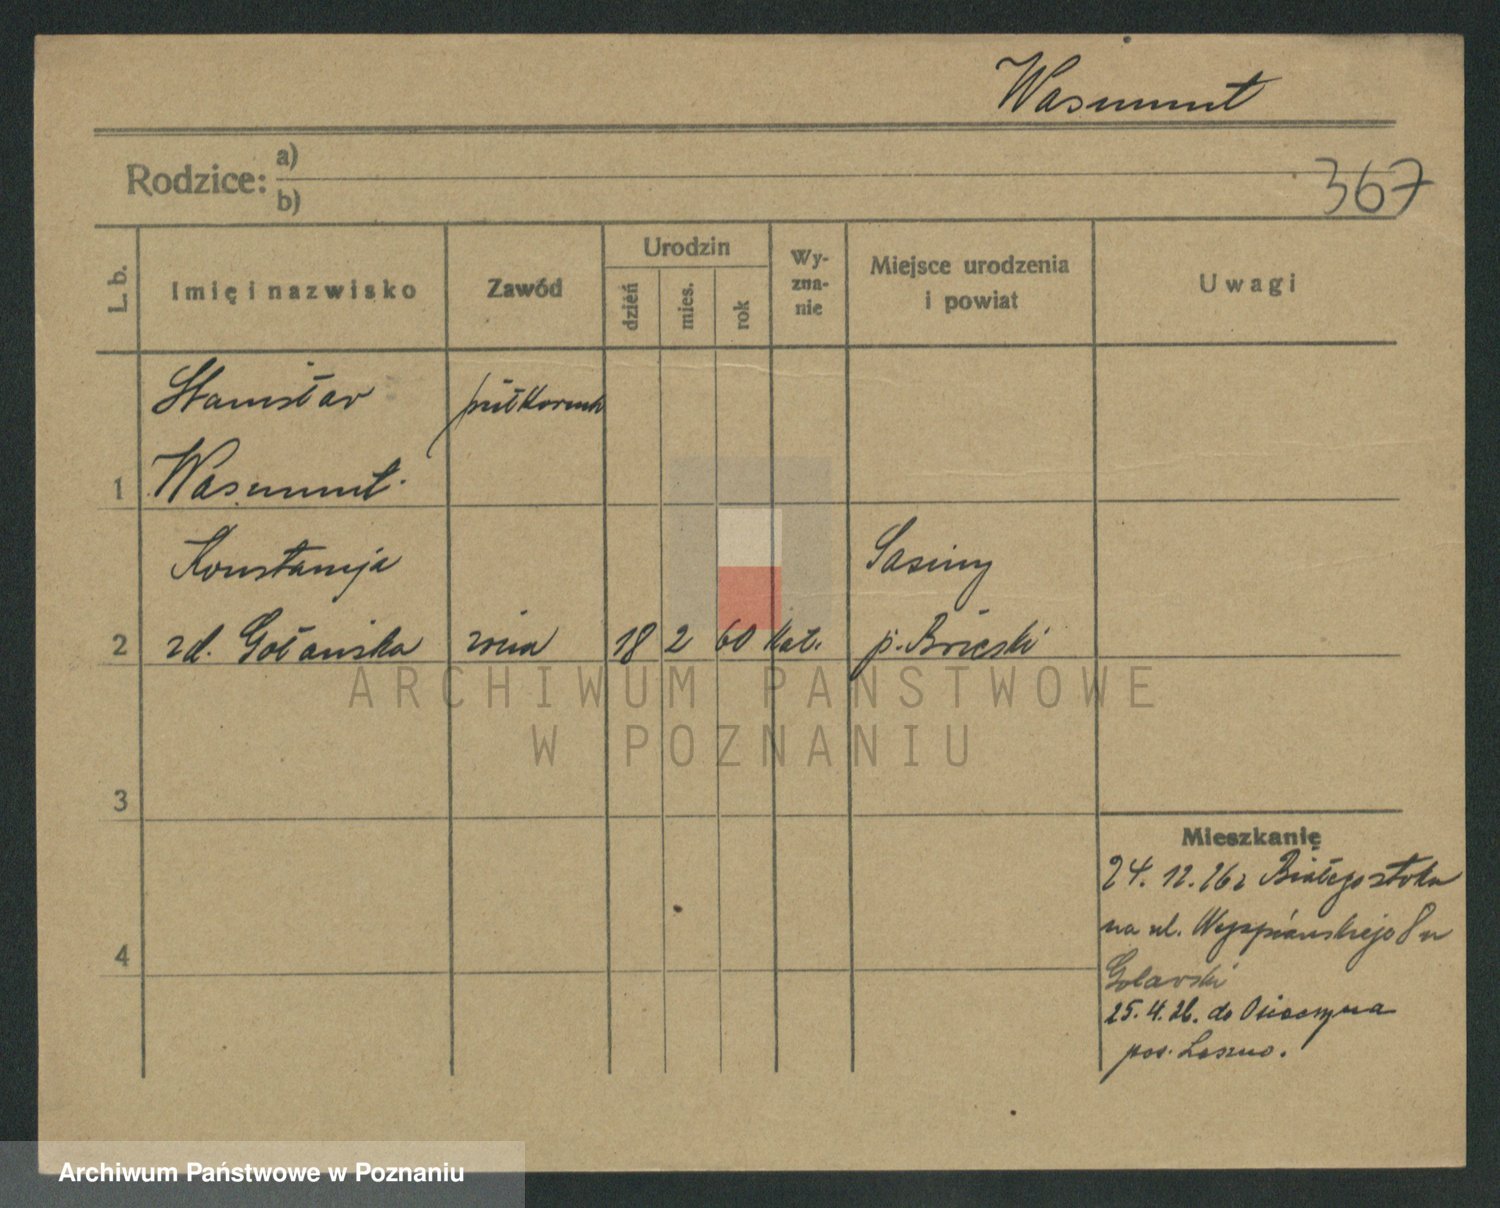 Wasmunt
Rodzice: a)
b)
367
L. b.
Imię i nazwisko
Zawód
Urodzin
dzień
mies.
rok
Wy-
zna-
nie
Miejsce urodzenia
i powiat
Uwagi
Stanisław
1 Wasmunt
Konstancja
Sasiny
2 zd. Gołańska
18 2 60 kat.
p. Brięski
3
Mieszkanię
24. 12. 26 z Białegostoku
na ul. Wyspiańskiego 8 u
Golavski
4
25. 4. 26. do
pow. Leszno.
ARCHIWUM PAŃSTWOWE
W POZNANIU
Archiwum Państwowe w Poznaniu